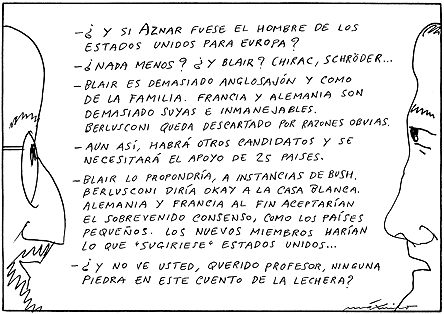 -¿ Y SI AZNAR FUESE EL HOMBRE DE LOS
ESTADOS UNIDOS PARA EUROPA?
-¿NADA MENOS? ¿Y BLAIR? CHIRAC, SCHRÖDER...
-BLAIR ES DEMASIADO ANGLOSAJÓN Y COMO
DE LA FAMILIA. FRANCIA Y ALEMANIA SON
DEMASIADO SUYAS E INMANEJABLES.
BERLUSCONI QUEDA DESCARTADO POR RAZONES OBVIAS.
-AUN ASÍ, HABRÁ OTROS CANDIDATOS Y SE
NECESITARÁ EL APOYO DE 25 PAISES.
-BLAIR LO PROPONDRÍA, A INSTANCIAS DE BUSH.
BERLUSCONI DIRÍA OKAY A LA CASA BLANCA.
ALEMANIA Y FRANCIA AL FIN ACEPTARÍAN
EL SOBREVENIDO CONSENSO, COMO LOS PAÍSES
PEQUEÑOS. LOS NUEVOS MIEMBROS HARÍAN
LO QUE "SUGIRIESE" ESTADOS UNIDOS...
-¿Y NO VE USTED, QUERIDO PROFESOR, NINGUNA
PIEDRA EN ESTE CUENTO DE LA LECHERA?
máximo